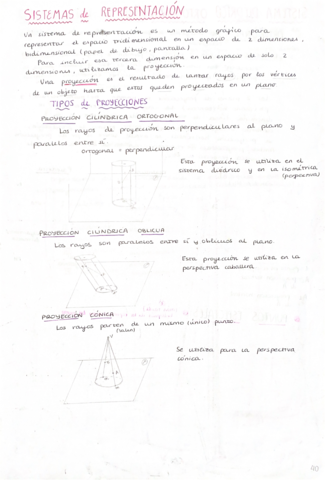 SISTEMAS de REPRESENTACIÓN
Un sistema de representación es un método gráfico para
representar el espacio tridimensional en un espacio de 2 dimensiones,
bidimensional (papel de dibujo, pantalla)
Para incluir esa tercera dimensión en un espacio de solo 2
dimensiones, utilizamos la proyección.
Una proyección es el resultado de lanzar rayos por los vértices
de un objeto hasta que estos queden proyectados en un plano
TIPOS de PROYECCIONES
PROYECCIÓN CILÍNDRICA ORTOGONAL
Los rayos de proyección son perpendiculares al plano y
paralelos entre sí
ortogonal = perpendicular
Esta proyección se utiliza en el
sistema diédrico y en la isométrica
(perspectiva)
PROYECCIÓN CILÍNDRICA OBLICUA
Los rayos son paralelos entre sí y oblicuos al plano
Esta proyección se utiliza en la
perspectiva caballera
PROYECCIÓN CÓNICA
Los rayos parten de un mismo (único) punto.
Se utiliza para la perspectiva
cónica.